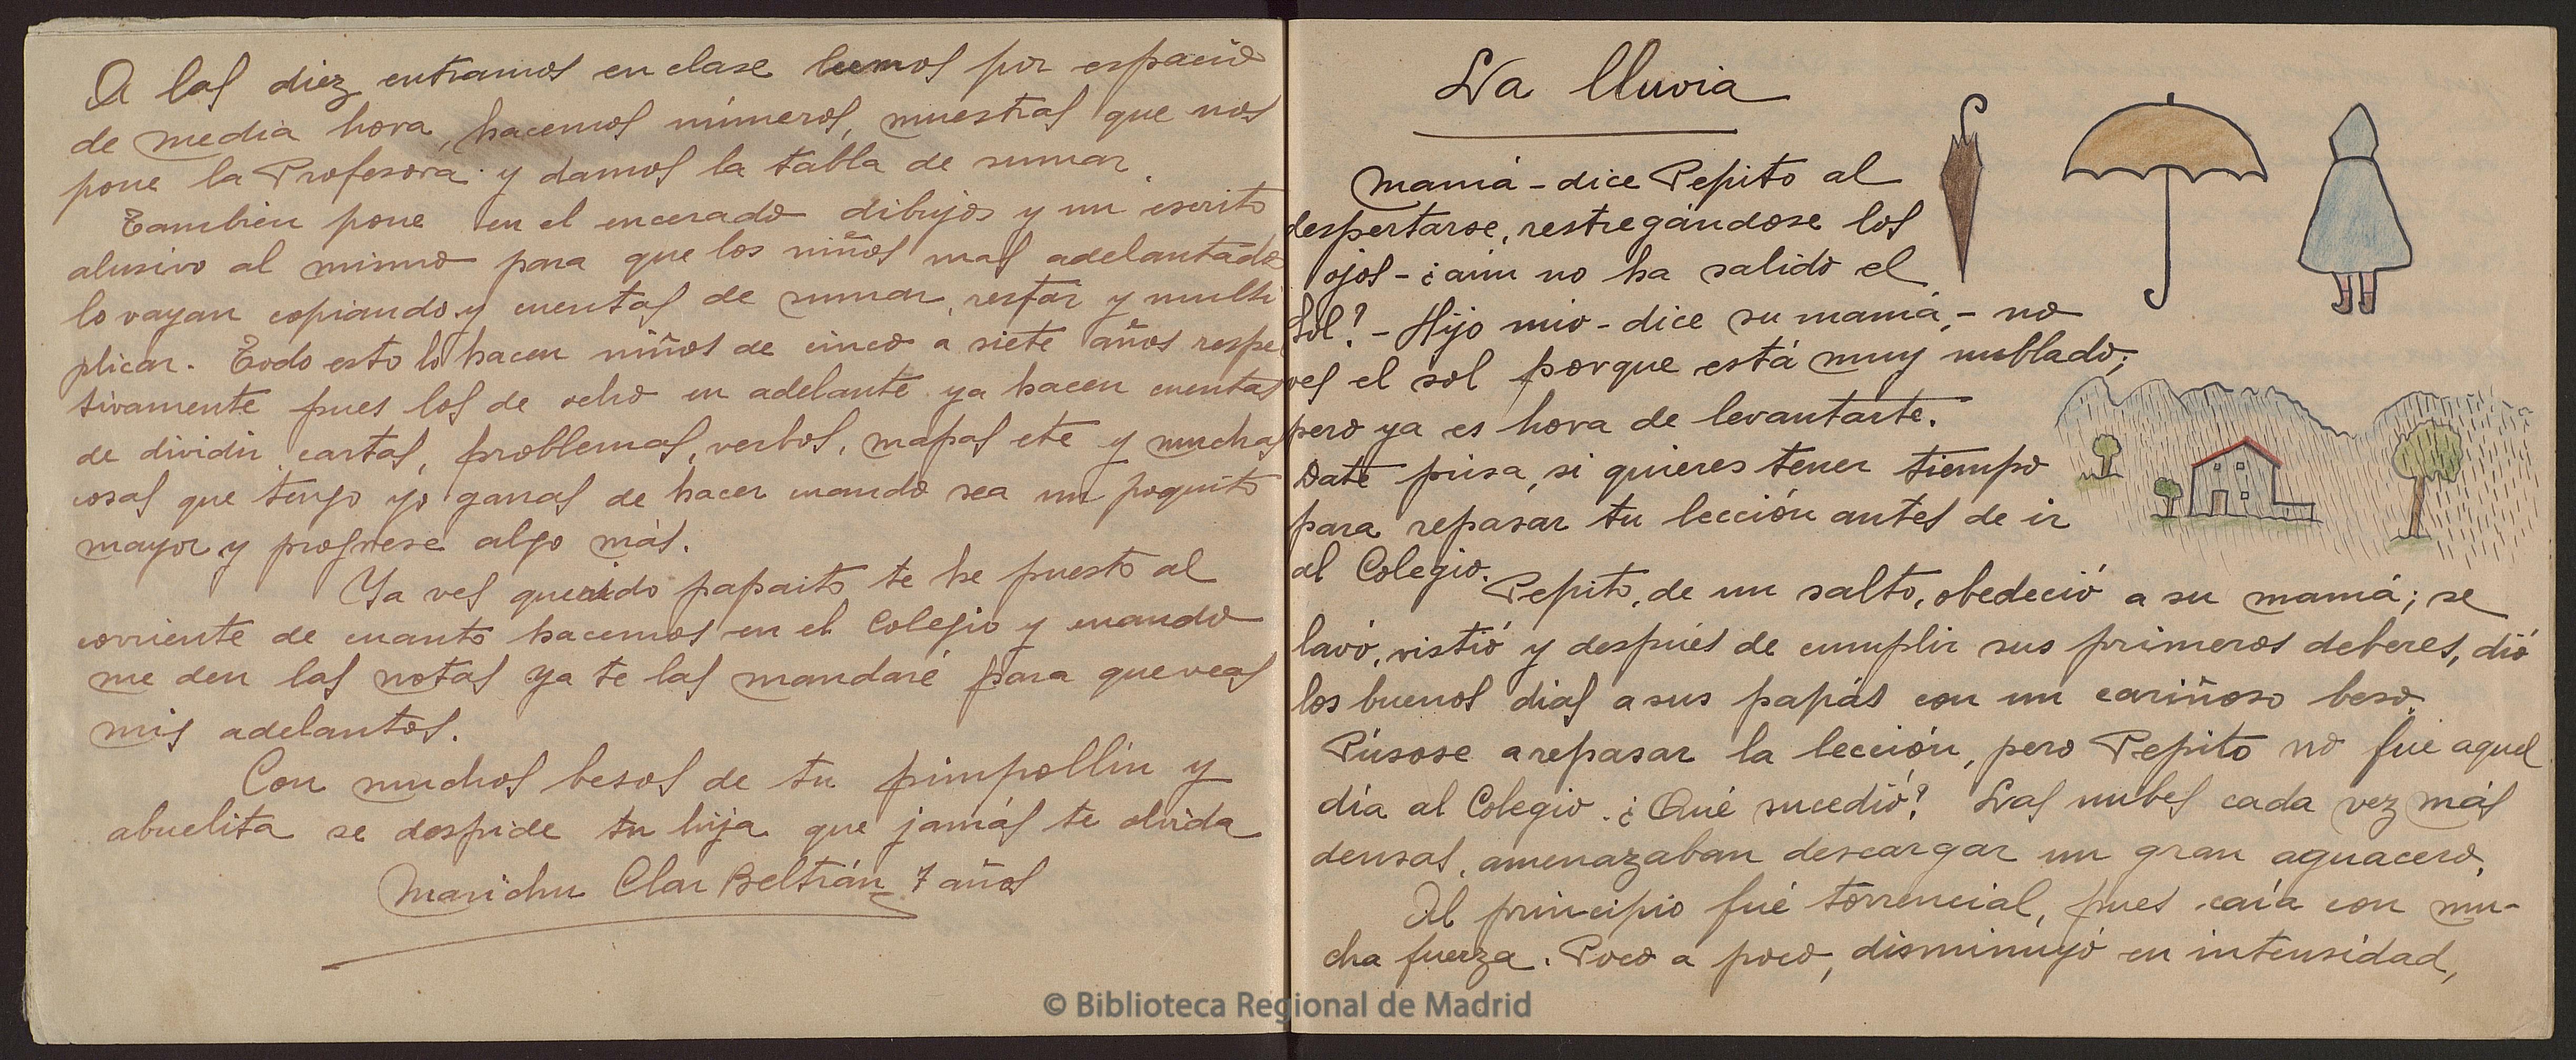 A las diez entramos en clase leemos por espacio
de media hora, hacemos números, muestras que nos
pone la Profesora y damos la tabla de sumar.
Tambien pone en el encerado dibujos y un escrito
alusivo al mismo para que los niños mas adelantados
lo vayan copiando y cuentas de sumar, restar y multi
plicar. Todo esto lo hacen niños de cinco a siete años respec
tivamente pues los de ocho en adelante ya hacen cuentas
de dividir, cartas, problemas, verbos, mapas etc y muchas
cosas que tengo yo ganas de hacer cuando sea un poquito
mayor y progrese algo más.
Ya ves querido papaito te he puesto al
corriente de cuanto hacemos en el Colegio y cuando
me den las notas ya te las mandaré para que veas
mis adelantos.
Con muchos besos de tu pimpollín y
abuelita se despide tu hija que jamás te olvida
Marichu Clar Beltrán 7 años
La lluvia
Mamá - dice Pepito al
despertarse, restregándose los
ojos - ¿aún no ha salido el
Sol? - Hijo mio - dice su mamá, - no
ves el sol porque está muy nublado;
pero ya es hora de levantarte.
Date prisa, si quieres tener tiempo
para repasar tu lección antes de ir
al Colegio.
Pepito, de un salto, obedeció a su mamá; se
lavó, vistió y después de cumplir sus primeros deberes, dió
los buenos dias a sus papás con un cariñoso beso.
Púsose a repasar la lección, pero Pepito no fue aquel
día al Colegio. ¿Qué sucedió? Las nubes cada vez más
densas, amenazaban descargar un gran aguacero.
Al principio fué torrencial, pues caía con mu-
cha fuerza. Poco a poco, disminuyó en intensidad,
© Biblioteca Regional de Madrid